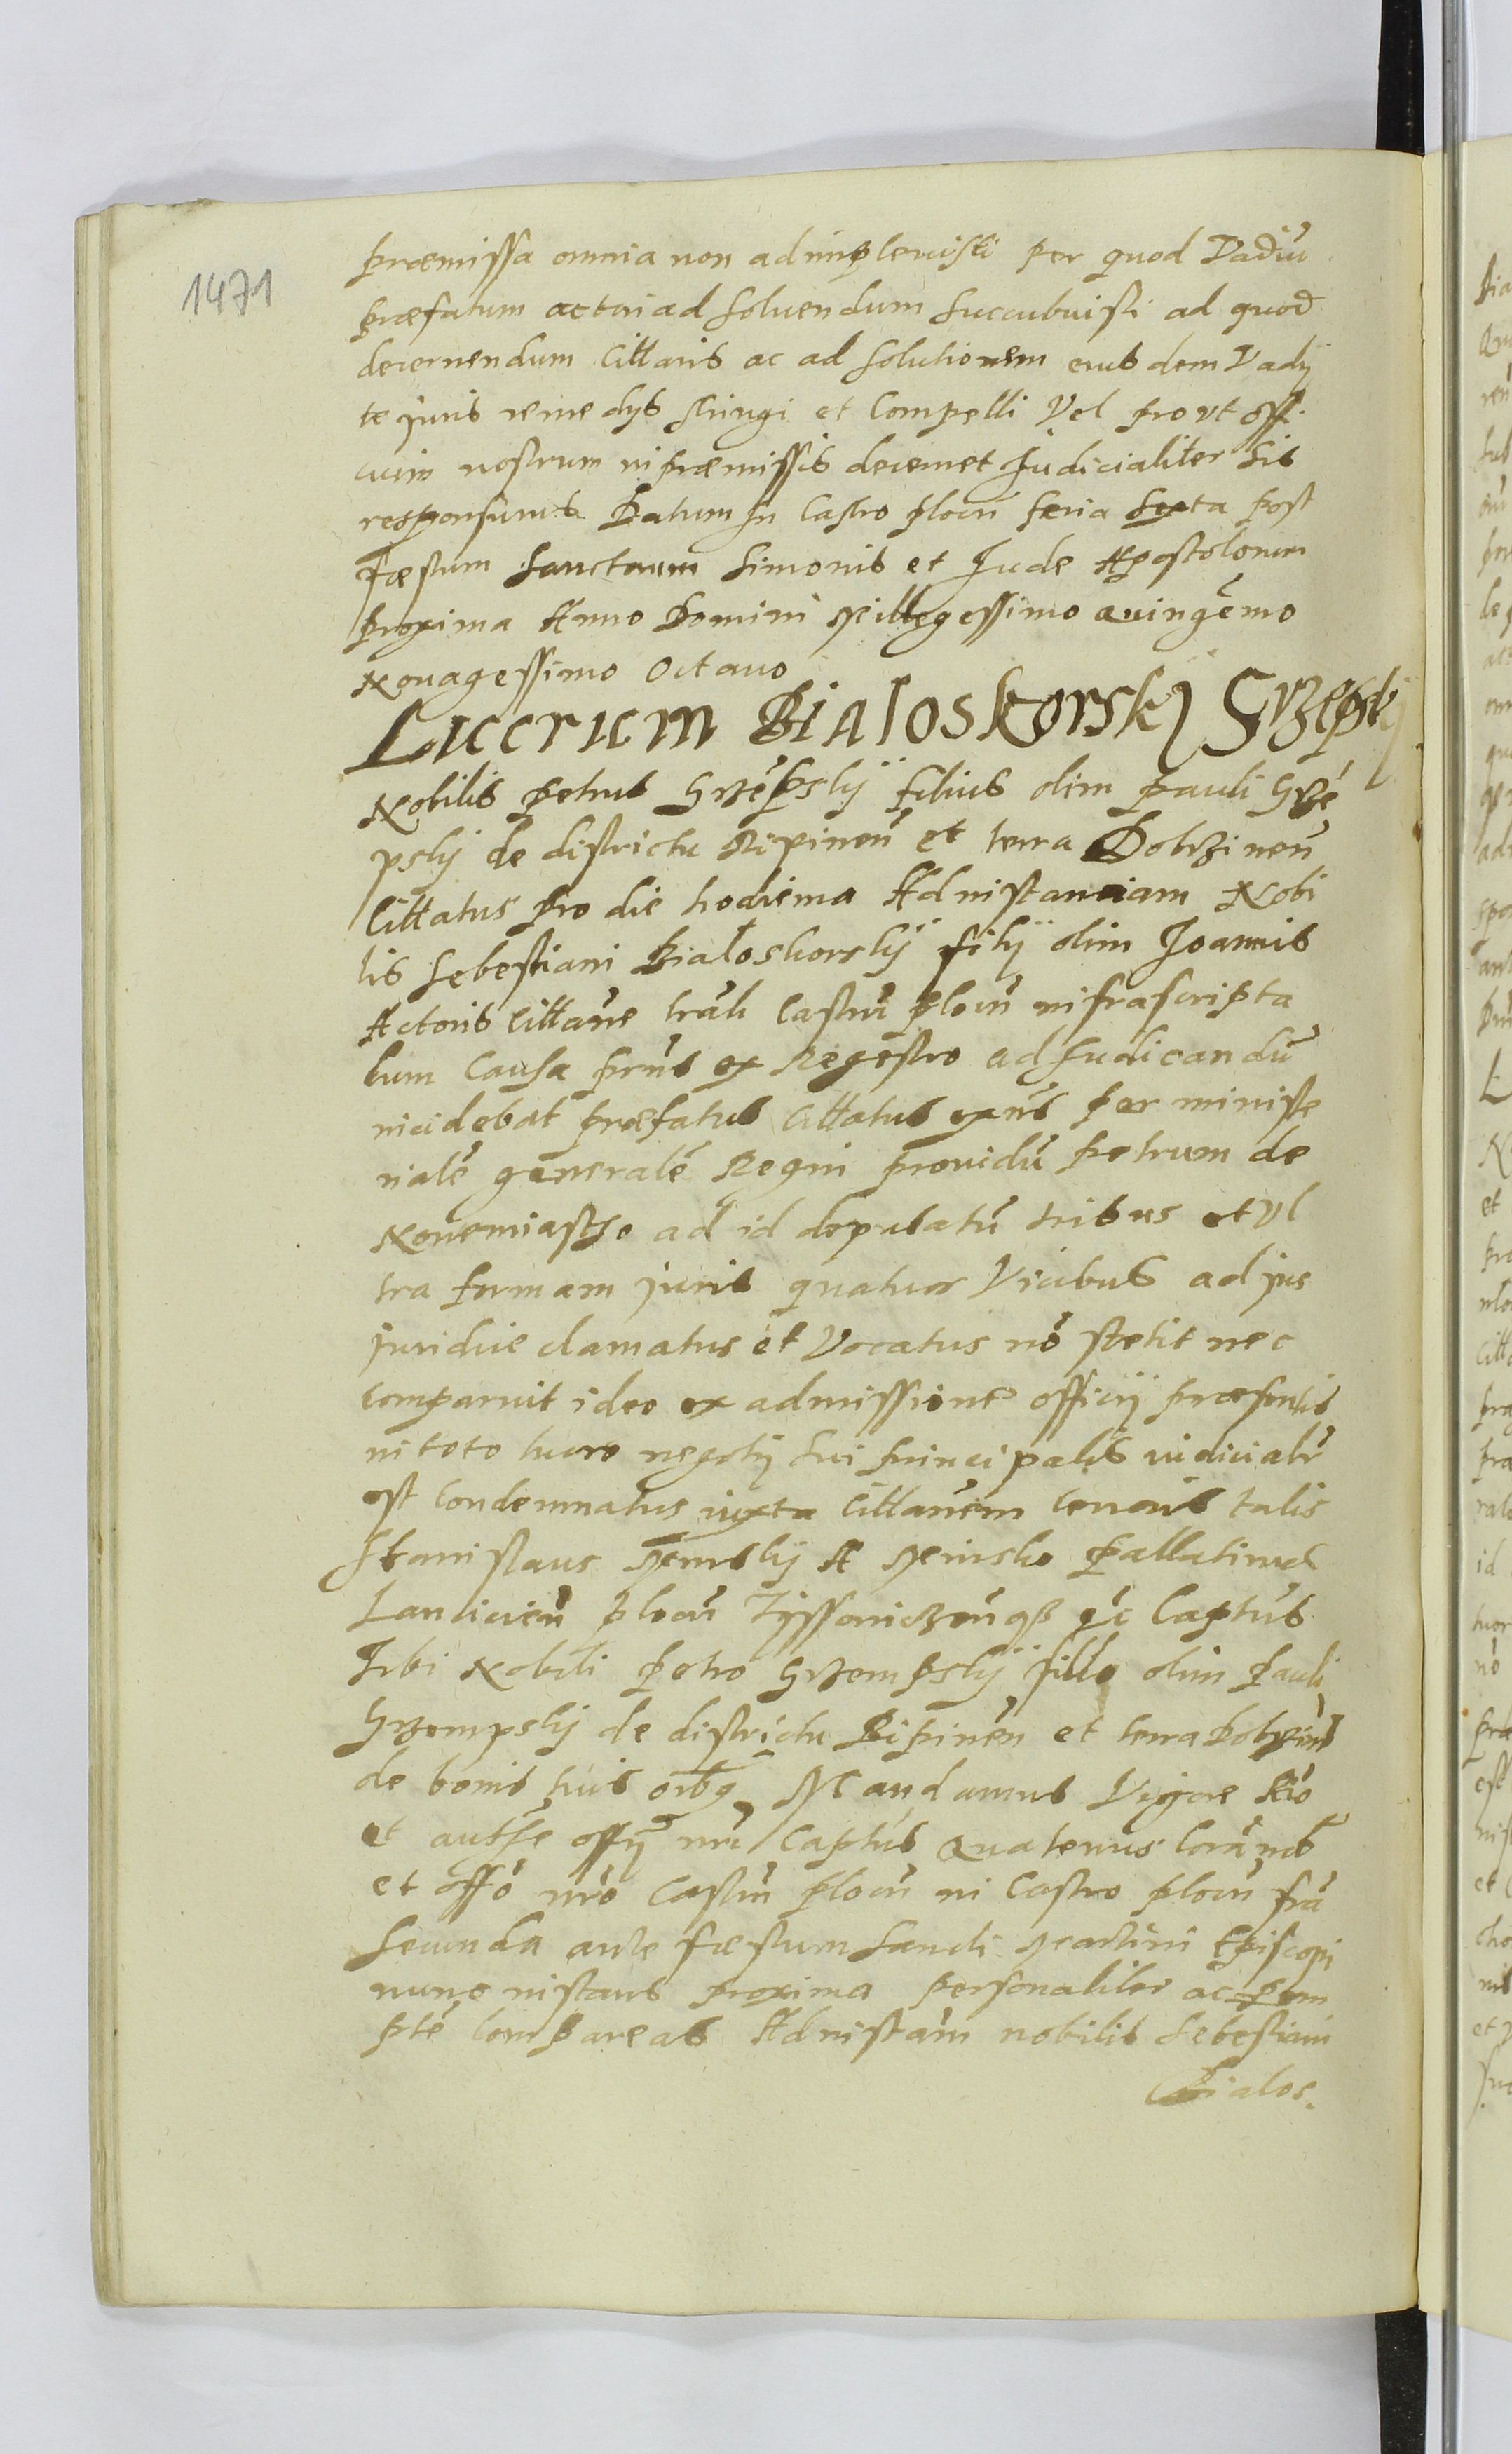 1471
præmissa omnia non adimplevisti per quod Vadiu
præfatum actori ad soluendum succubuisti ad quod
decernendum Cittaris ac ad solutionem eius dem Vadÿ
te juris remedÿs stringi et Compelli Vel prout offi
cium nostrum in præmissis decernet Judicialiter sis
responsurus Datum In Castro plocen feria sexta post
fæstum Sanctarum Simonis et Jude Apostolorum
proxima Anno Domini Millegessimo quingēmo
Nonagessimo Octauo
Luccrum Bialoskorskj Grzepskj
Nobilis Petrus Grzēpskÿ filius olim Pauli Grzē
pskÿ de districtu Ripinen et terra Dobrzinen
Cittatus pro die hodierna Ad instanciam Nobi
lis Sebestiani Białoskorskÿ filÿ olim Joannis
Actoris Cittaōne trāli Castrn plocn infrascripta
tum Causa prnts ex Regestro ad Judicandū
incidebat præfatus Cittatus exns per ministe
rialē generalē Regni prouidū Petrum de
Novemiastho ad id deputatū tribus et vl
tra formam juris quatuor Vicibus ad jus
juridice clamatus et Vocatus nō stetit nec
comparuit ideo ex admissione officÿ præsentis
in toto lucro negotÿ sui principalis iudicialr
est Condemnatus iuxta Cittaōnem tenoris talis
Stanislaus Minskÿ A Minsko Pallatinus
Lanciciēn plocn
Tibi Nobili Petro Grzempskÿ filio olim Pauli
Grzempskÿ de districtu Ripinēn et terra Dobrzins
de bonis tuis oibq Mandamus Vigore
et authē offÿ nri Captūs Quatenus Corā nob
et offō nrō Castrn plocn in Castro plocn fria
Secunda ante fæstum Sancti Martini Episcopi
nunc instans proxima personaliter ac perem
ptē Compareas Ad instām nobilis Sebestiani
Bialos.